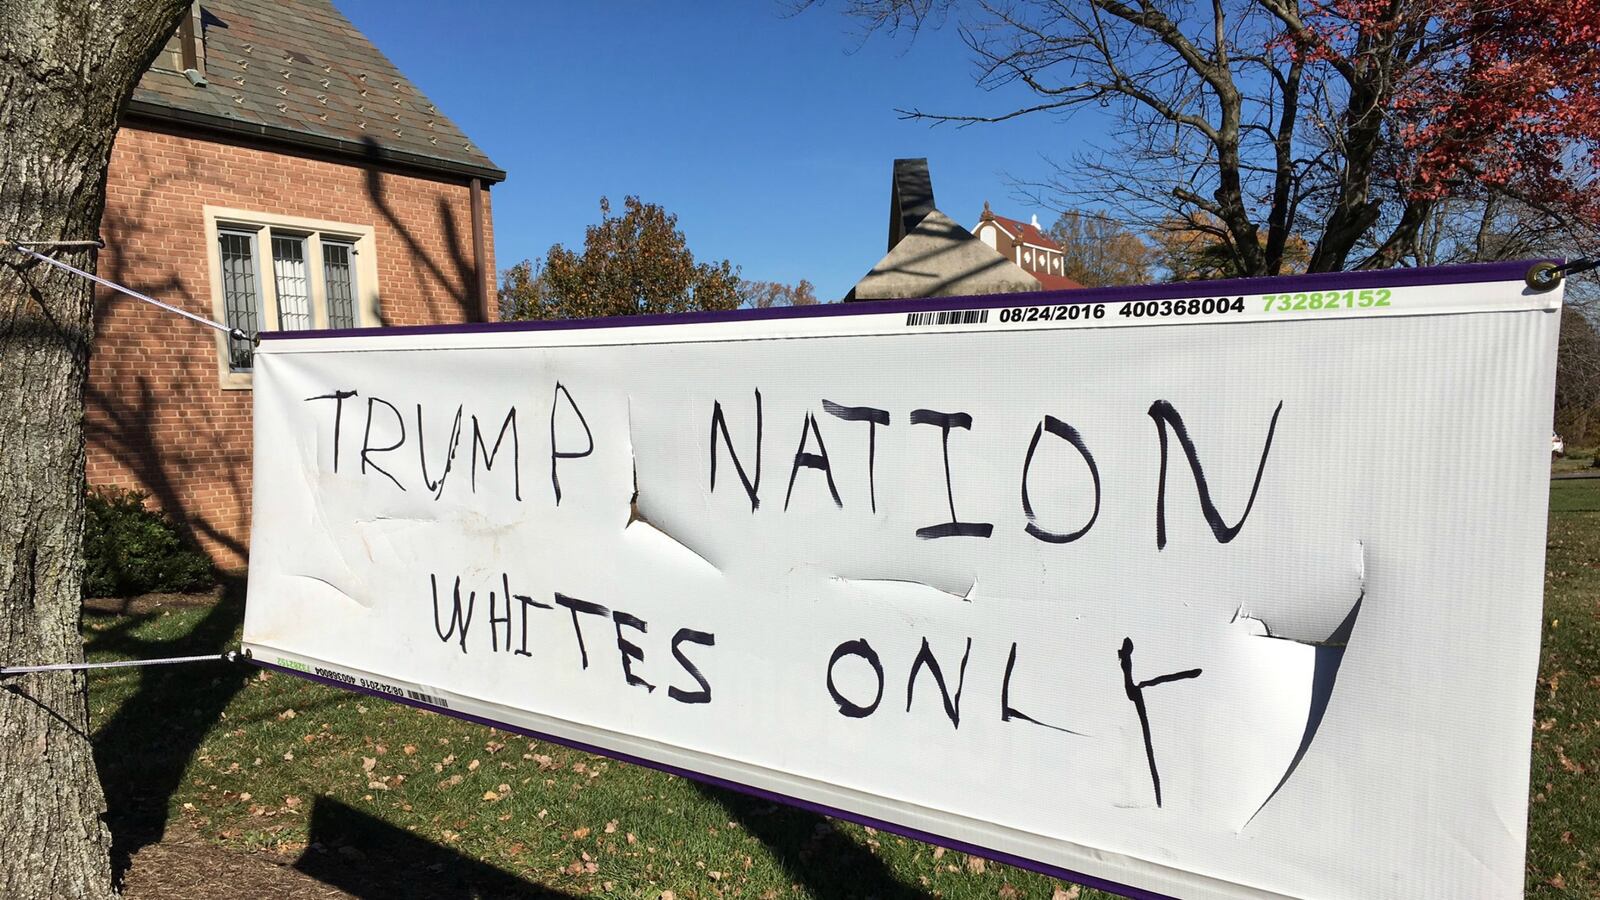 08/24/2016 400368004 73282152
TRUMP NATION
WHITES ONLY
08/24/2016 400368004 73282152